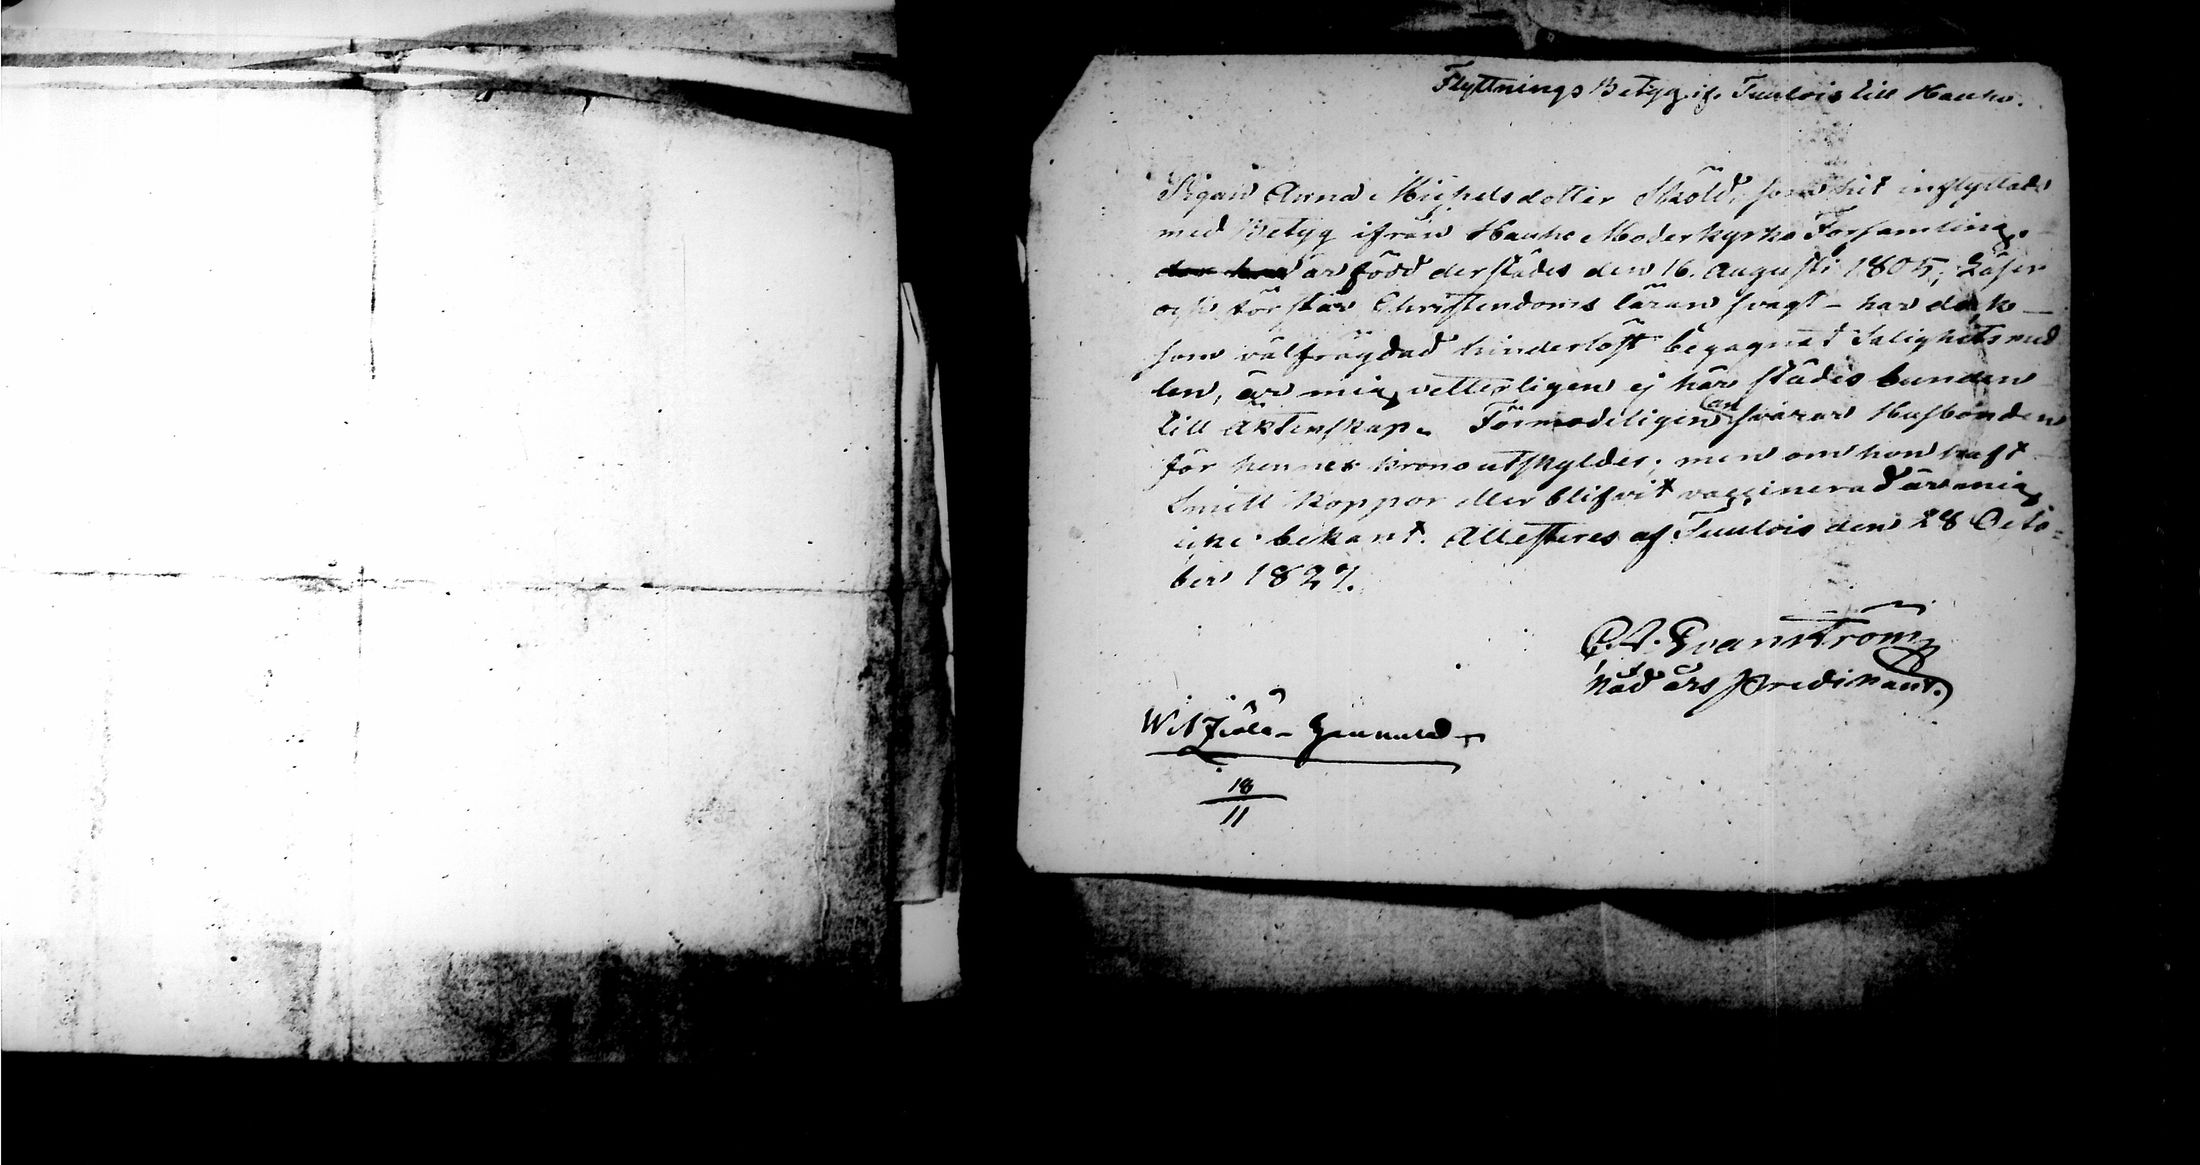 Flyttnings Betyg if. Tuulois till Hauho.
Pigan Anna Michelsdotter Sköld, som hit inflyttade
med Betyg ifrån Hauho Moderkyrko Församling,
är född derstädes den 16. Augusti 1805, Läser
och förstår Christendoms läran svagt – har dock
som välfrägdad hinderlöst begagnat Salighetsmed
len, är mig vetterligen ej här städes bunden
till Äktenskap. Förmodeligen ansvarar Husbonden
för hennes Kronoutskylder; men om hon haft
Smitt koppor eller blifvit vaccinerad är mig
icke bekant. Attesteres af Tuulois den 28 Octo-
ber 1827.
C. A. Granström
Nåd års Predikant.
18
11